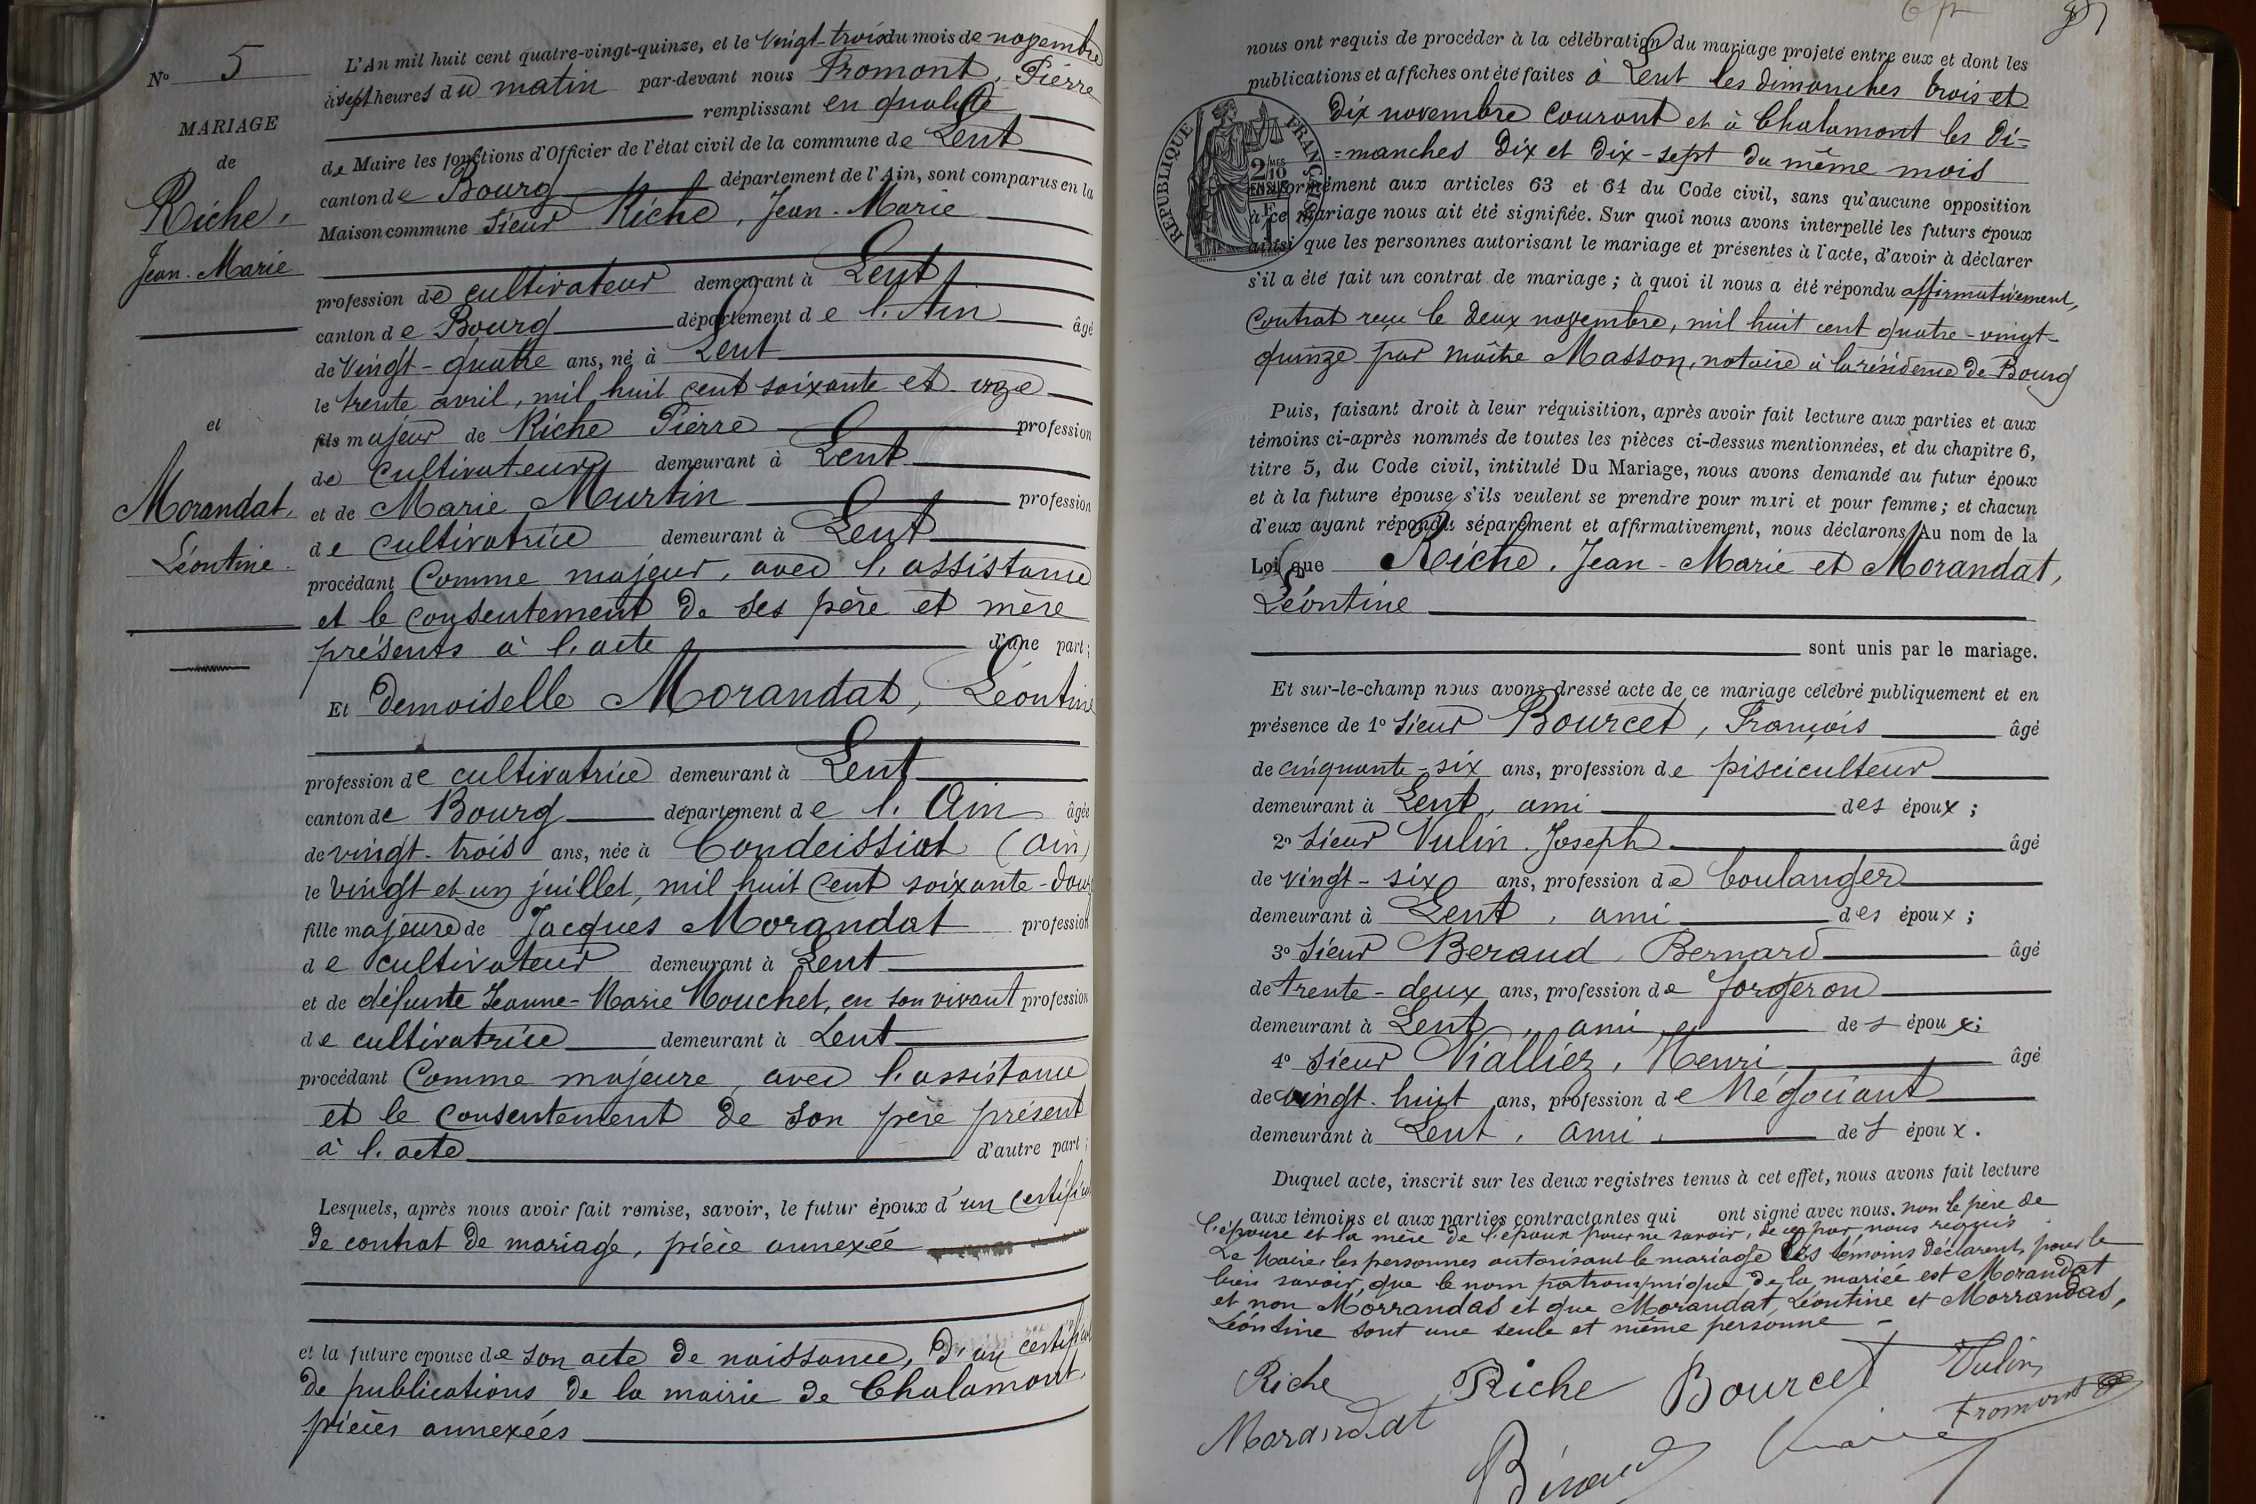 N° 5
MARIAGE
de
Riche,
Jean-Marie
et
Morandat,
Léontine.
L'An mil huit cent quatre-vingt-quinze, et le vingt-trois du mois de novembre
à sept heures du matin par-devant nous Fromont, Pierre
remplissant en qualité
de Maire les fonctions d'Officier de l'état civil de la commune de Lent
canton de Bourg département de l'Ain, sont comparus en la
Maison commune sieur Riche, Jean-Marie
profession de cultivateur demeurant à Lent
canton de Bourg département de l'Ain âgé
de vingt-quatre ans, né à Lent
le trente avril, mil huit cent soixante et onze
fils majeur de Riche Pierre profession
de cultivateur demeurant à Lent
et de Marie Murtin profession
de cultivatrice demeurant à Lent
procédant comme majeur, avec l'assistance
et le consentement de ses père et mère
présents à l'acte d'une part;
Et demoiselle Morandat, Léontine
profession de cultivatrice demeurant à Lent
canton de Bourg département de l'Ain âgée
de vingt-trois ans, née à Condeissiat (Ain)
le vingt et un juillet, mil huit cent soixante-douze
fille majeure de Jacques Morandat profession
de cultivateur demeurant à Lent
et de défunte Jeanne-Marie Mouchet, en son vivant profession
de cultivatrice demeurant à Lent
procédant comme majeure, avec l'assistance
et le consentement de son père présent
à l'acte d'autre part;
Lesquels, après nous avoir fait remise, savoir, le futur époux d'un certificat
de contrat de mariage, pièce annexée
et la future épouse de son acte de naissance, d'un certificat
de publications de la mairie de Chalamont,
pièces annexées
nous ont requis de procéder à la célébration du mariage projeté entre eux et dont les
publications et affiches ont été faites à Lent les dimanches trois et
dix novembre courant et à Chalamont les di-
=manches dix et dix-sept du même mois
RÉPUBLIQUE FRANÇAISE
2/10 EN SUS
conformément aux articles 63 et 64 du Code civil, sans qu'aucune opposition
à ce mariage nous ait été signifiée. Sur quoi nous avons interpellé les futurs époux
ainsi que les personnes autorisant le mariage et présentes à l'acte, d'avoir à déclarer
s'il a été fait un contrat de mariage; à quoi il nous a été répondu affirmativement,
contrat reçu le deux novembre, mil huit cent quatre-vingt-
quinze par maître Masson, notaire à la résidence de Bourg
Puis, faisant droit à leur réquisition, après avoir fait lecture aux parties et aux
témoins ci-après nommés de toutes les pièces ci-dessus mentionnées, et du chapitre 6,
titre 5, du Code civil, intitulé Du Mariage, nous avons demandé au futur époux
et à la future épouse s'ils veulent se prendre pour mari et pour femme; et chacun
d'eux ayant répondu séparément et affirmativement, nous déclarons Au nom de la
Loi que Riche, Jean-Marie et Morandat,
Léontine
sont unis par le mariage.
Et sur-le-champ nous avons dressé acte de ce mariage célébré publiquement et en
présence de 1° sieur Bourcet, François âgé
de cinquante-six ans, profession de pisciculteur
demeurant à Lent, ami des époux;
2° sieur Vulin Joseph âgé
de vingt-six ans, profession de boulanger
demeurant à Lent, ami des époux;
3° sieur Beraud, Bernard âgé
de trente-deux ans, profession de forgeron
demeurant à Lent, ami des époux;
4° sieur Vialliez, Henri âgé
de vingt-huit ans, profession de Négociant
demeurant à Lent, ami des époux.
Duquel acte, inscrit sur les deux registres tenus à cet effet, nous avons fait lecture
aux témoins et aux parties contractantes qui ont signé avec nous. non le père de
l'épouse et la mère de l'époux pour ne savoir, de ce par nous requis.
Le Maire, les personnes autorisant le mariage les témoins déclarent, pour le
bien savoir, que le nom patronymique de la mariée est Morandat
et non Morrandas et que Morandat, Léontine et Morrandas,
Léontine sont une seule et même personne
Riche Riche Bourcet Vulin
Morandat Fromont
Béraud